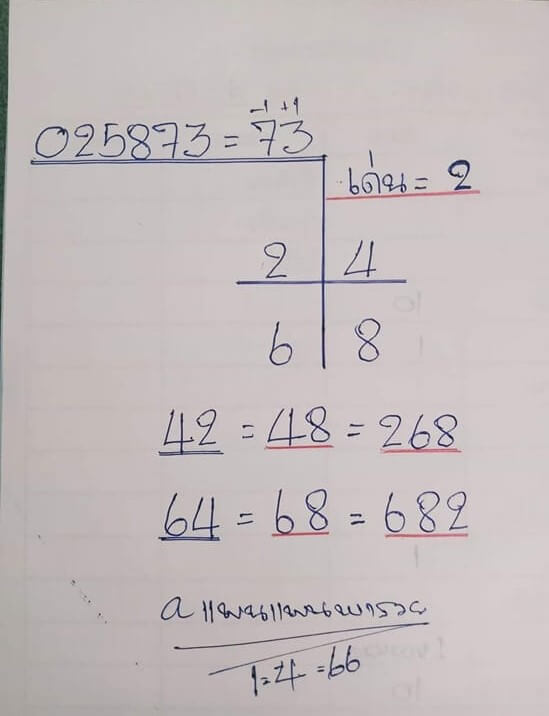 -1 +1
025873 = 73
เด่น = 2
2 4
6 8
42 = 48 = 268
64 = 68 = 682
a
1=4 = 66